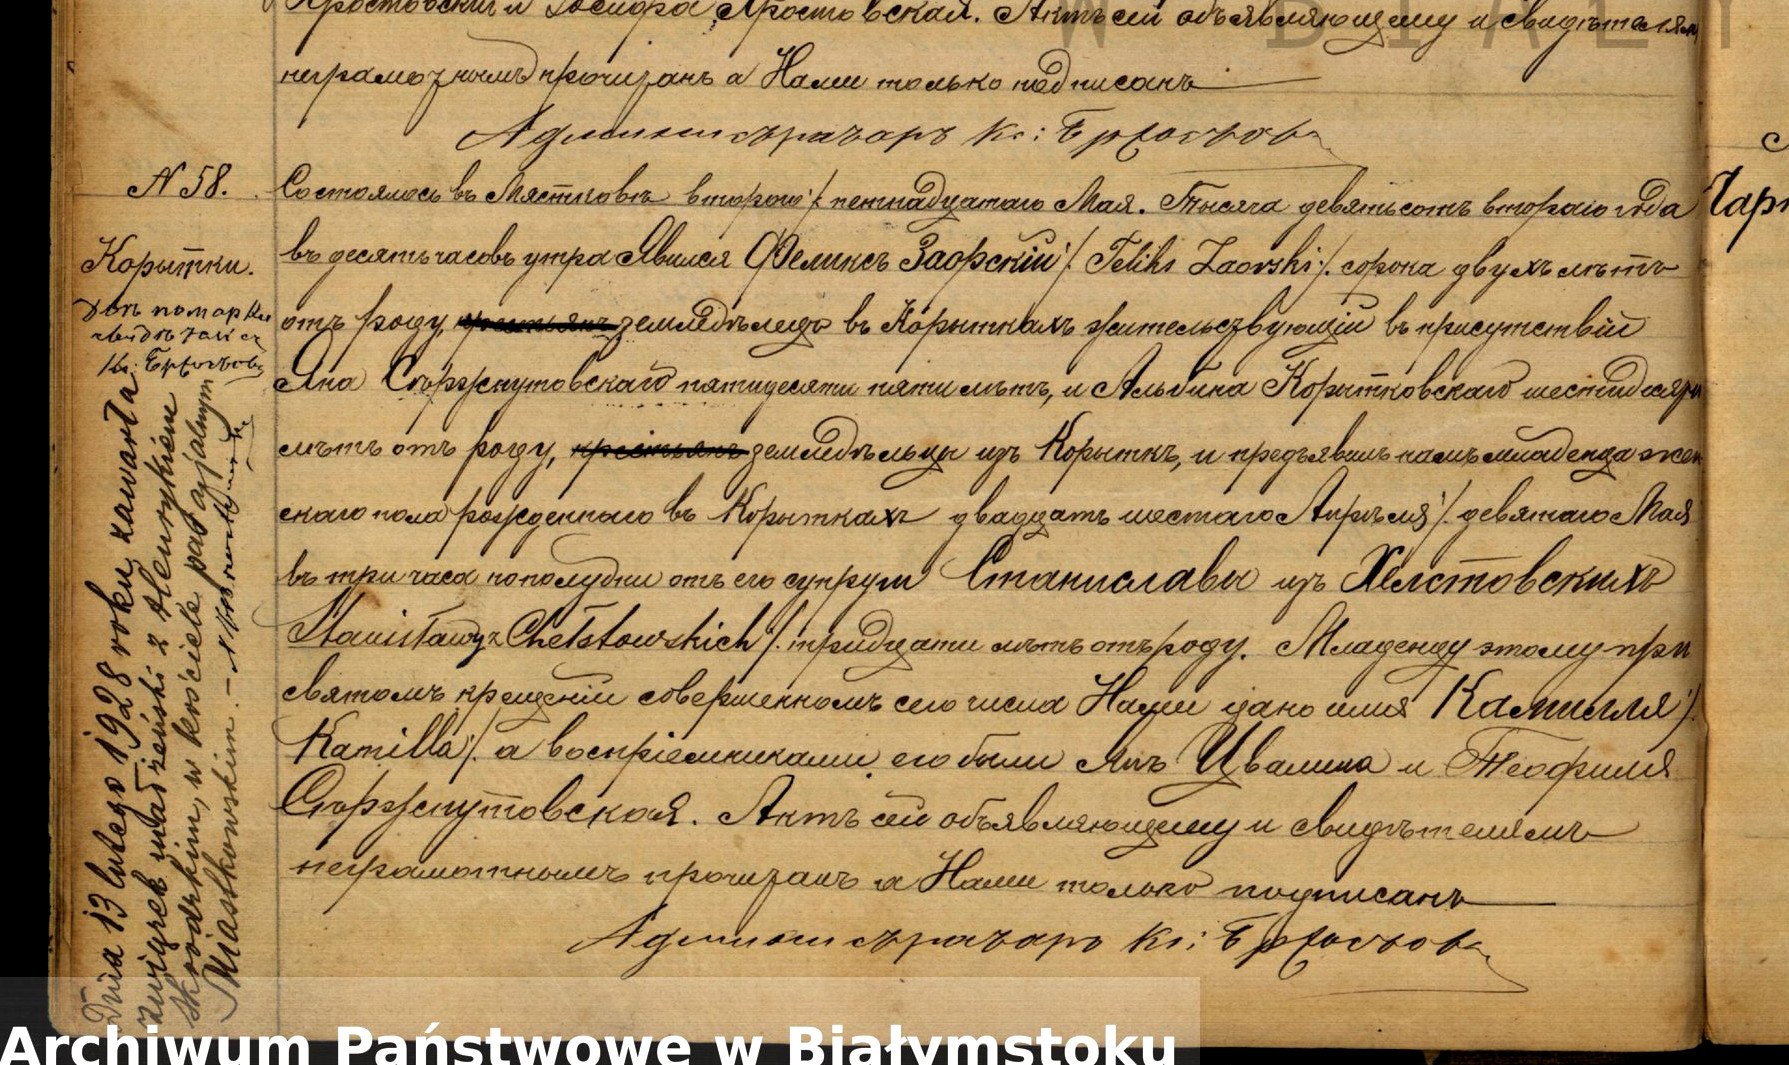 Хростовскій и Хростовская. Актъ сей объявляющему и свидѣтелям
неграмотнымъ прочитанъ а Нами только подписанъ
Администраторъ Кс:
N 58.
Корытки.
Состоялось въ Мястковѣ второго /: пятнадцатаго Мая. Тысяча девятьсотъ второго года
въ десять часовъ утра Явился Феликсъ Заорскій /: Feliks Zaorski :/ сорока двухъ лѣтъ
отъ роду, крестьянъ земледѣлецъ въ Корыткахъ жительствующій въ присутствіи
Яна Скржынутовскаго пятидесяти пяти лѣтъ, и Альбина Корытковскаго шестидесяти
лѣтъ отъ роду, крестьянъ земледѣльцы изъ Корыткъ, и предъявилъ намъ младенца жен
скаго пола рожденнаго въ Корыткахъ двадцать шестаго Апрѣля /: девятаго Мая
въ три часа пополудни отъ его супруги Станиславы изъ Хелстовскихъ
Stanisławy z Chełstowskich /: тридцати лѣтъ отъ роду. Младенцу этому при
святомъ крещеніи совершенномъ сего числа Нами дано имя Камилля /:
Kamilla :/ а воспріемниками его были Янъ Цвалина и Теофиля
Актъ сей объявляющему и свидѣтелямъ
неграмотнымъ прочитанъ а Нами только подписанъ
Администраторъ Кс:
Dnia 13 lutego 1928 roku zawarła
związek małżeński z Henrykiem
Skrodzkim, w kościele parafjalnym
Miastkowskim. –
Archiwum Państwowe w Białymstoku